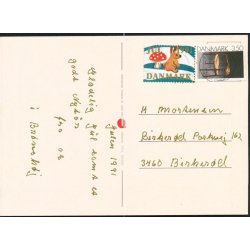 Julen 1991
Glædelig
Jul samt et
godt Nytår
fra os
i Brønshøj
DANMARK
DANMARK 3.50
H Mortensen
Birkerød Parkvej 162
3460 Birkerød